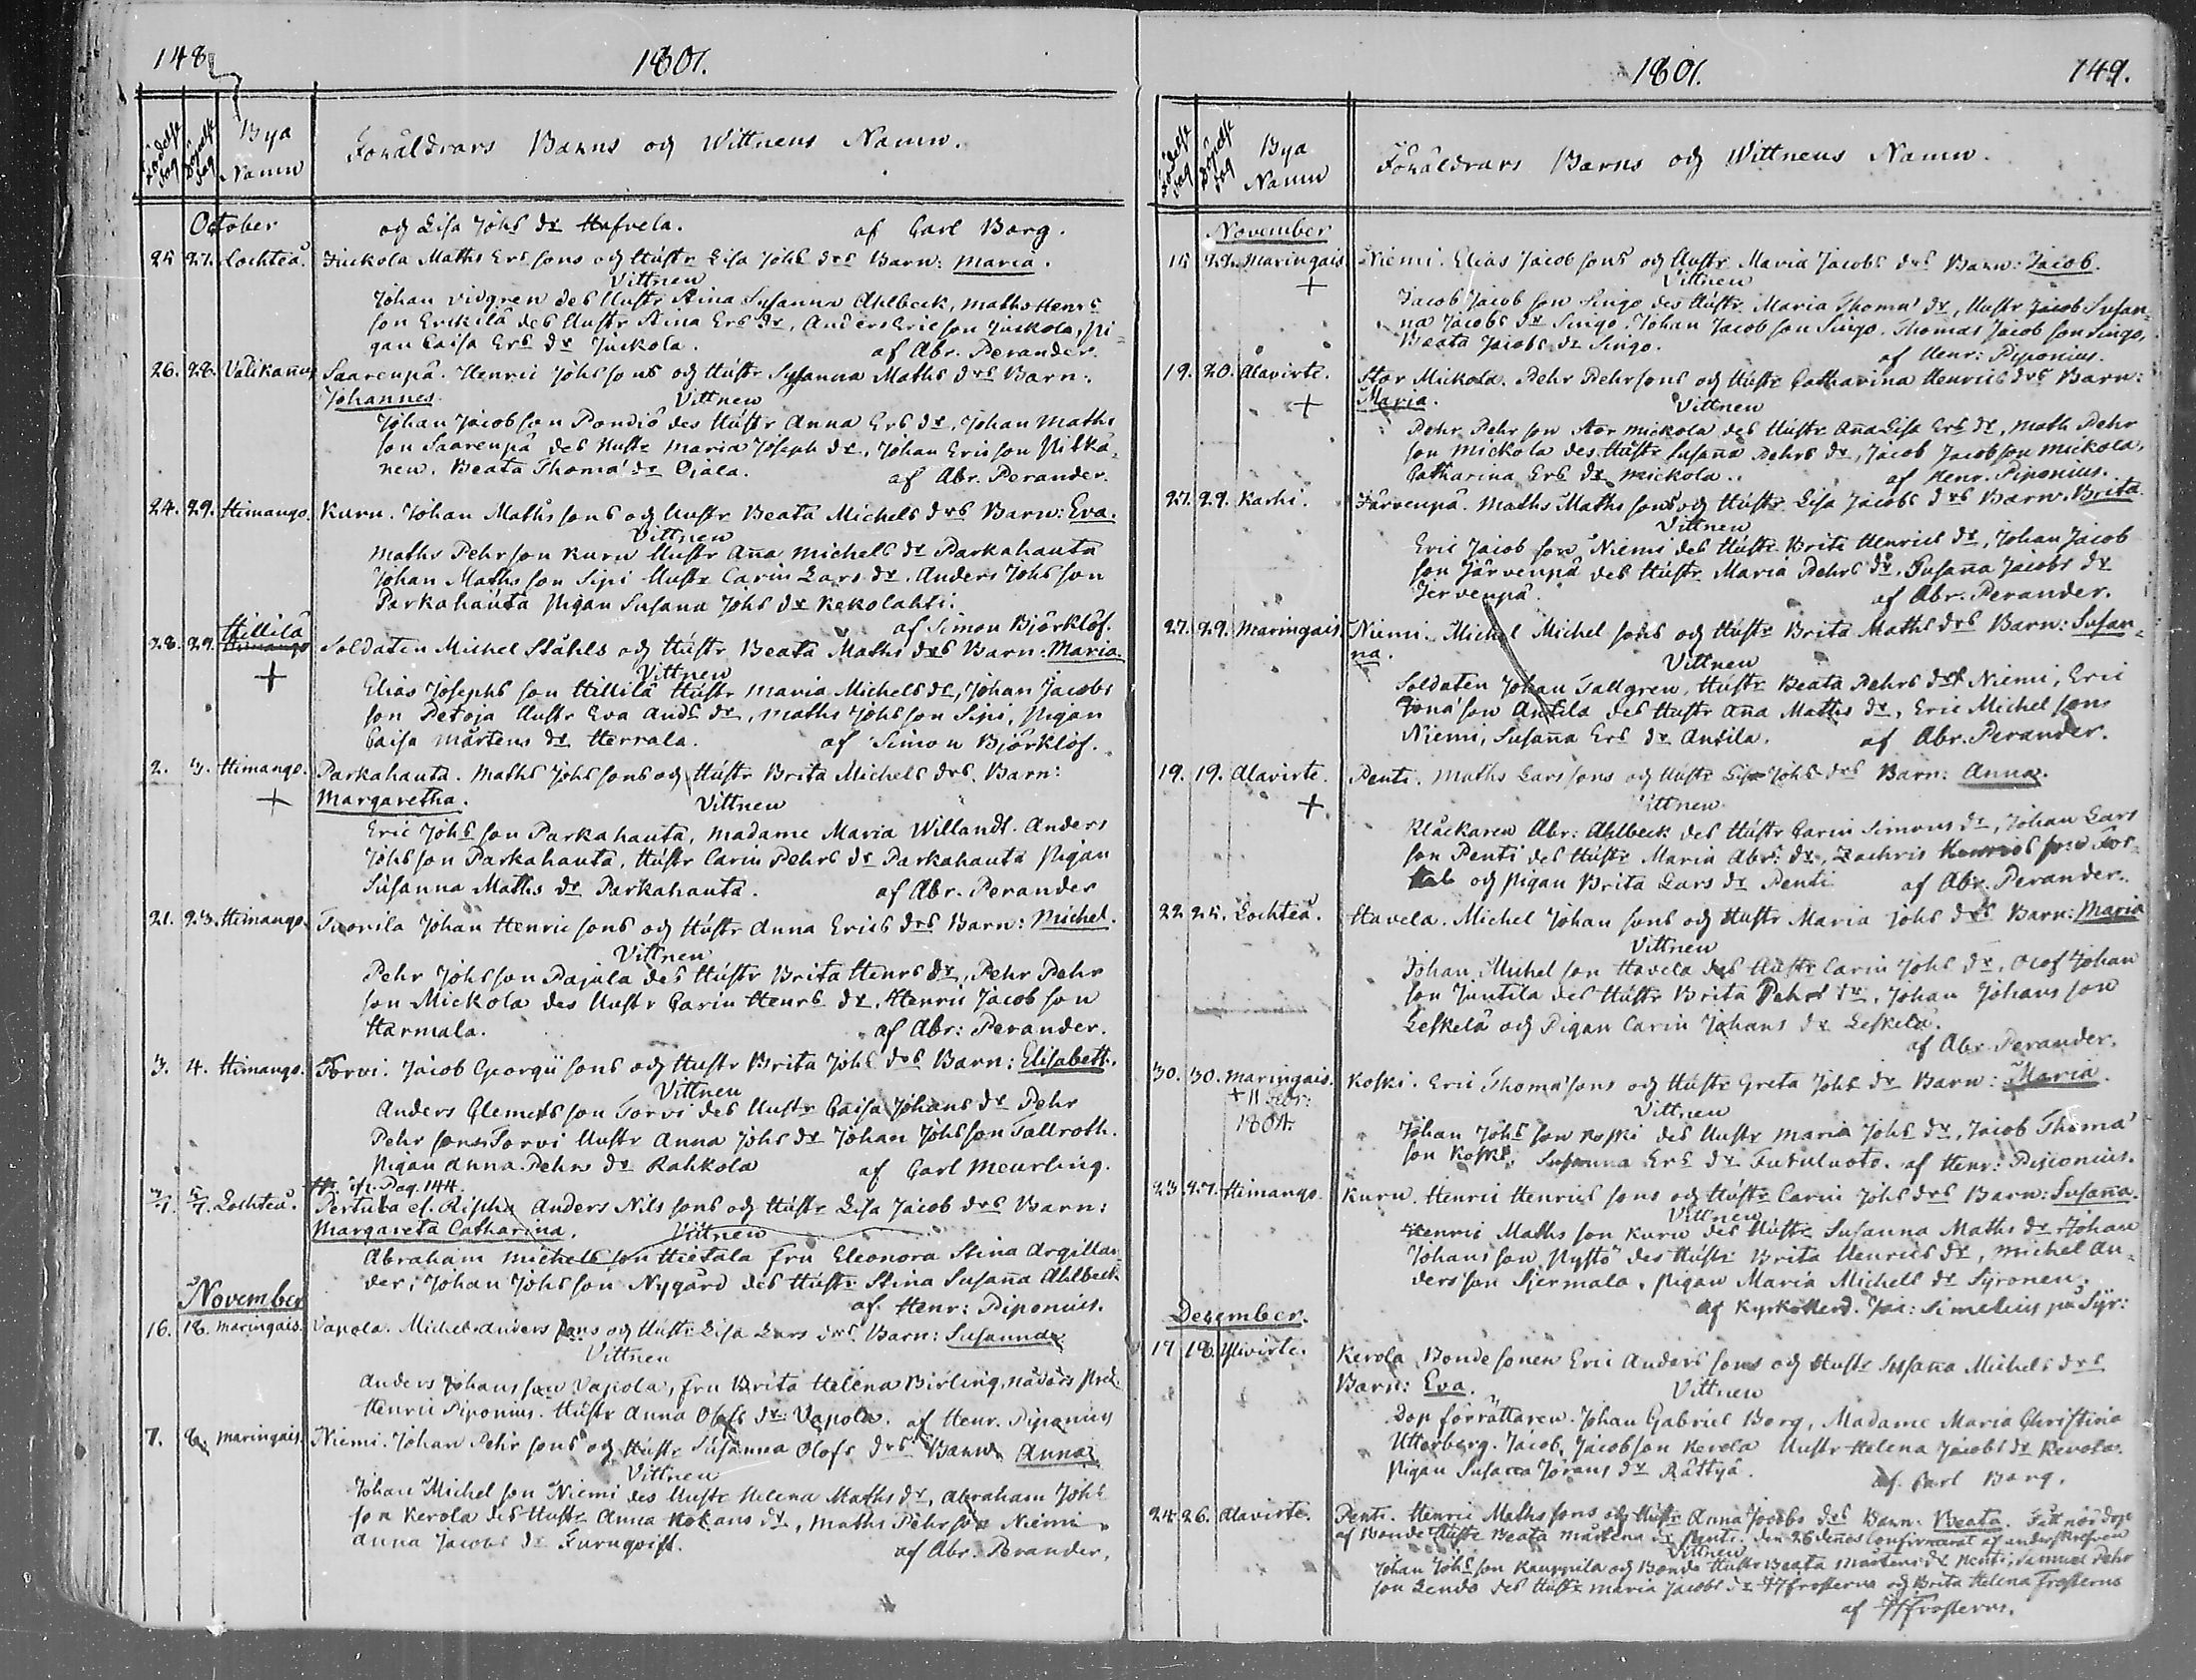 148
1801.
Födelse dag
Döpelse dag
Bya Namn
Föräldrars Barns og Wittnens Namn.
October
og Lisa Johs dr Hafvela. af Carl Borg.
25 27. Lochteå. Juckola Maths Ers sons og Hustr Lisa Johs drs Barn: Maria.
Vittnen
Johan Vidgren des Hustr Stina Susanna Ahlbeck, Maths Henrs
son Erckilä des Hustr Stina Ers dr, Anders Ericson Juckola, Pi-
gan Caisa Ers dr Juckola. af Abr. Perander.
26. 28. Välikañus Saarenpä. Henric Johs sons og Hustr Susanna Maths drs Barn:
Johannes. Vittnen
Johan Jacobson Pondiö des Hustr Anna Ers dr, Johan Maths
son Saarenpä des Hustr Maria Joseph dr, Johan Ericson Pitkä-
nen. Beata Thoma' dr Ojala. af Abr. Perander.
24. 29. Himango. Kuru. Johan Maths sons og Hustr Beata Michels drs Barn: Eva.
Vittnen
Maths Pehrson Kuru Hustr Aña Michels dr Parkahauta
Johan Maths son Sipi Hustr Carin Lars dr. Anders Johs son
Parkahauta Pigan Susana Johs dr Kekolahti.
af Simon Björklöf.
Hillilä
28. 29. Himango Soldaten Michel Ståhls og Hustr Beata Maths drs Barn: Maria.
+ Vittnen
Elias Josephs son Hillilä Hustr Maria Michels dr, Johan Jacobs
son Petoja Hustr Eva Ands dr, Maths Johs son Sipi, Pigan
Caisa Mårtens dr Herrala. af Simon Björklöf.
2. 3. Himango. Parkahauta. Maths Johs sons og Hustr Brita Michels drs. Barn:
+ Margaretha. Vittnen
Eric Johs son Parkahauta, Madame Maria Willandt. Anders
Johs son Parkahauta, Hustr Carin Pehrs dr Parkahauta Pigan
Susanna Maths dr Parkahauta. af Abr. Perander
21. 23. Himango. Tuorila Johan Henric sons og Hustr Anna Erics drs Barn: Michel.
Vittnen
Pehr Johs son Pajula des Hustr Brita Henrs dr, Pehr Pehr
son Mickola des Hustr Carin Henrs dr. Henric Jacob son
Harmala. af Abr: Perander.
3. 4. Himango. Torvi. Jacob Georgii sons og Hustr Brita Johs drs Barn: Elisabeth.
Vittnen
Anders Clemets son Torvi des Hustr Caisa Johans dr Pehr
Pehr sons Torvi Hustr Anna Johs dr Johan Johs son Tallroth.
Pigan Anna Pehrs dr Rahkola af Carl Meurling.
cf. Pag. 144.
Lochteå. Pertula el. Anders Nils sons og Hustr Lisa Jacob drs Barn:
Margareta Catharina. Vittnen
Abraham Michels son Hietala fru Eleonora Stina Argillan-
der, Johan Johs son Nygård des Hustr Stina Susaña Ahlbeck
af Henr: Piponius.
November
16. 18. Maringais. Vapola. Michel Anders sons og Hustr Lisa Lars drs Barn: Susanna
Vittnen
Anders Johans son Vapola, fru Brita Helena Birling, Nådårs Pred.
Henric Piponius. Hustr Anna Olofs dr: Vapola. af Henr. Piponius
7. 8. Maringais. Niemi. Johan Pehr sons og Hustr Susanna Olofs drs Barn Anna
Vittnen
Johan Michel son Niemi des Hustr Helena Maths dr, Abraham Johs
son Kerola des Hustr Anna dr, Maths Pehrson Niemi
Anna Jacobs dr Furuqvist. af Abr. Perander.
1801. 149.
Födelse dag
Döpelse dag
Bya Namn
Föräldrars Barns og Wittnens Namn.
November
15 22. Maringais. Niemi. Elias Jacob sons og Hustr Maria Jacobs drs Barn: Jacob.
+ Vittnen
Jacob Jacob son Singo des Hustr Maria Thoma' dr, Hustr Jacob Susan-
na Jacobs dr Singo. Johan Jacob son Singo. Thomas Jacob son Singo,
Beata Jacobs dr Singo. af Henr: Piponius.
19. 20. Alavirte. Stor Mickola. Pehr Pehrsons og Hustr Catharina Henrics drs Barn:
+ Maria. Vittnen
Pehr Pehr son Stor Mickola des Hustr Aña Lisa Ers dr, Math Pehr
son Mickola des Hustr Susaña Pehrs dr, Jacob Jacobson Mickola,
Catharina Ers dr Mickola. af Henr. Piponius.
27. 29. Karhi. Järvenpä. Maths Maths sons og Hustr Lisa Jacobs drs Barn. Brita
Vittnen
Eric Jacob son Niemi des Hustr Brita Henrics dr, Johan Jacob
son Järvenpä des Hustr Maria Pehrs dr. Susaña Jacobs dr
Jervenpä. af Abr. Perander.
27. 29. Maringais. Niemi. Michel Michel sons og Hustr Brita Maths drs Barn: Susan-
na. Vittnen
Soldaten Johan Tallgren, Hustr Beata Pehrs dr Niemi, Eric
Jona'son Antila des Hustr Aña Maths dr, Eric Michel sons
Niemi, Susaña Ers dr Antila. af Abr. Perander.
19. 19. Alavirte. Penti. Maths Lars sons og Hustr Lisa Johs drs Barn: Anna.
+ Vittnen
Klåckaren Abr: Ahlbeck des Hustr Carin Simons dr, Johan Lars
son Penti des Hustr Maria Abrs: dr, Zachris son
og Pigan Brita Lars dr Penti af Abr. Perander.
22 25. Lochteå. Havela. Michel Johan sons og Hustr Maria Johs drs Barn: Maria
Vittnen
Johan Michel son Havela des Hustr Carin Johs dr, Olof Johan
son Juntila des Hustr Brita Pehrs dr, Johan Johans son
Leskelä og Pigan Carin Johans dr Leskelä.
af Abr. Perander.
30. 30. Maringais. Koski. Eric Thoma'sons og Hustr Greta Johs dr Barn: Maria.
+ 11
1804. Vittnen
Johan Johs son Koski des Hustr Maria Johs dr, Jacob Thoma'
son Koski. Susanna Ers dr. af Henr: Piponius.
23. 27. Himango. Kuru. Henric Henrics sons og Hustr Carin Johs drs Barn: Susaña.
Vittnen
Henric Maths son Kuru des Hustr Susanna Maths dr Johan
Johans son Pystö des Hustr Brita Henrics dr, Michel An-
ders son Sjermala. Pigan Maria Michels dr Syronen.
af Kyrkoherd. Jac: Simelius på Syr:
December.
17 18. Ylivirte. Kerola Bonde sonen Eric Anders sons og Hustr Susaña Michels drs
Barn: Eva. Vittnen
Dop förrättaren. Johan Gabriel Borg, Madame Maria Christina
Utterberg. Jacob Jacobson Kerola Hustr Helena Jacobs dr Kerola.
Pigan Susanna Jörans dr Rättyä. af Carl Borg.
24 26. Alavirte. Penti. Henric Maths sons og Hustr Anna Jacobs drs Barn. Beata. Fått nöddop
af Bonde Hustr Beata Mårtens dr Penti, den 26 denes Confirmerat af underskrefven
Vittnen
Johan Johs son Kauppila og Bonde Hustr Beata Mårtens dr Penti, Samuel Pehr
son des Hustr Maria Jacobs dr Frosterus og Brita Helena Frosterus
af Frosterus.